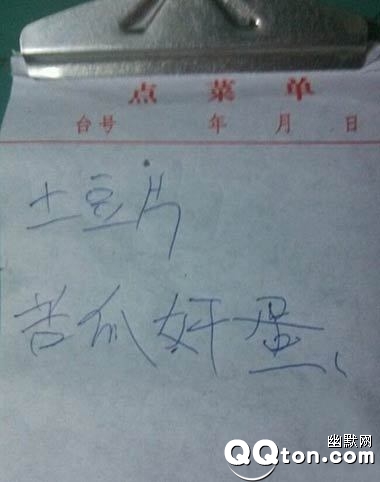 点菜单
台号 年 月 日
土豆片
苦瓜奸蛋、
幽默网
QQton.com